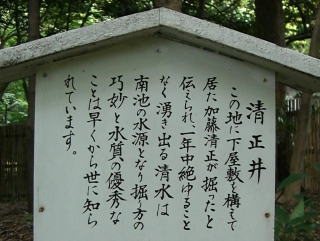 清正井
この地に下屋敷を構えて
居た加藤清正が掘ったと
伝えられ、一年中絶ゆること
なく湧き出る清水は
南池の水源となり掘方の
巧妙と水質の優秀な
ことは早くから世に知ら
れています。